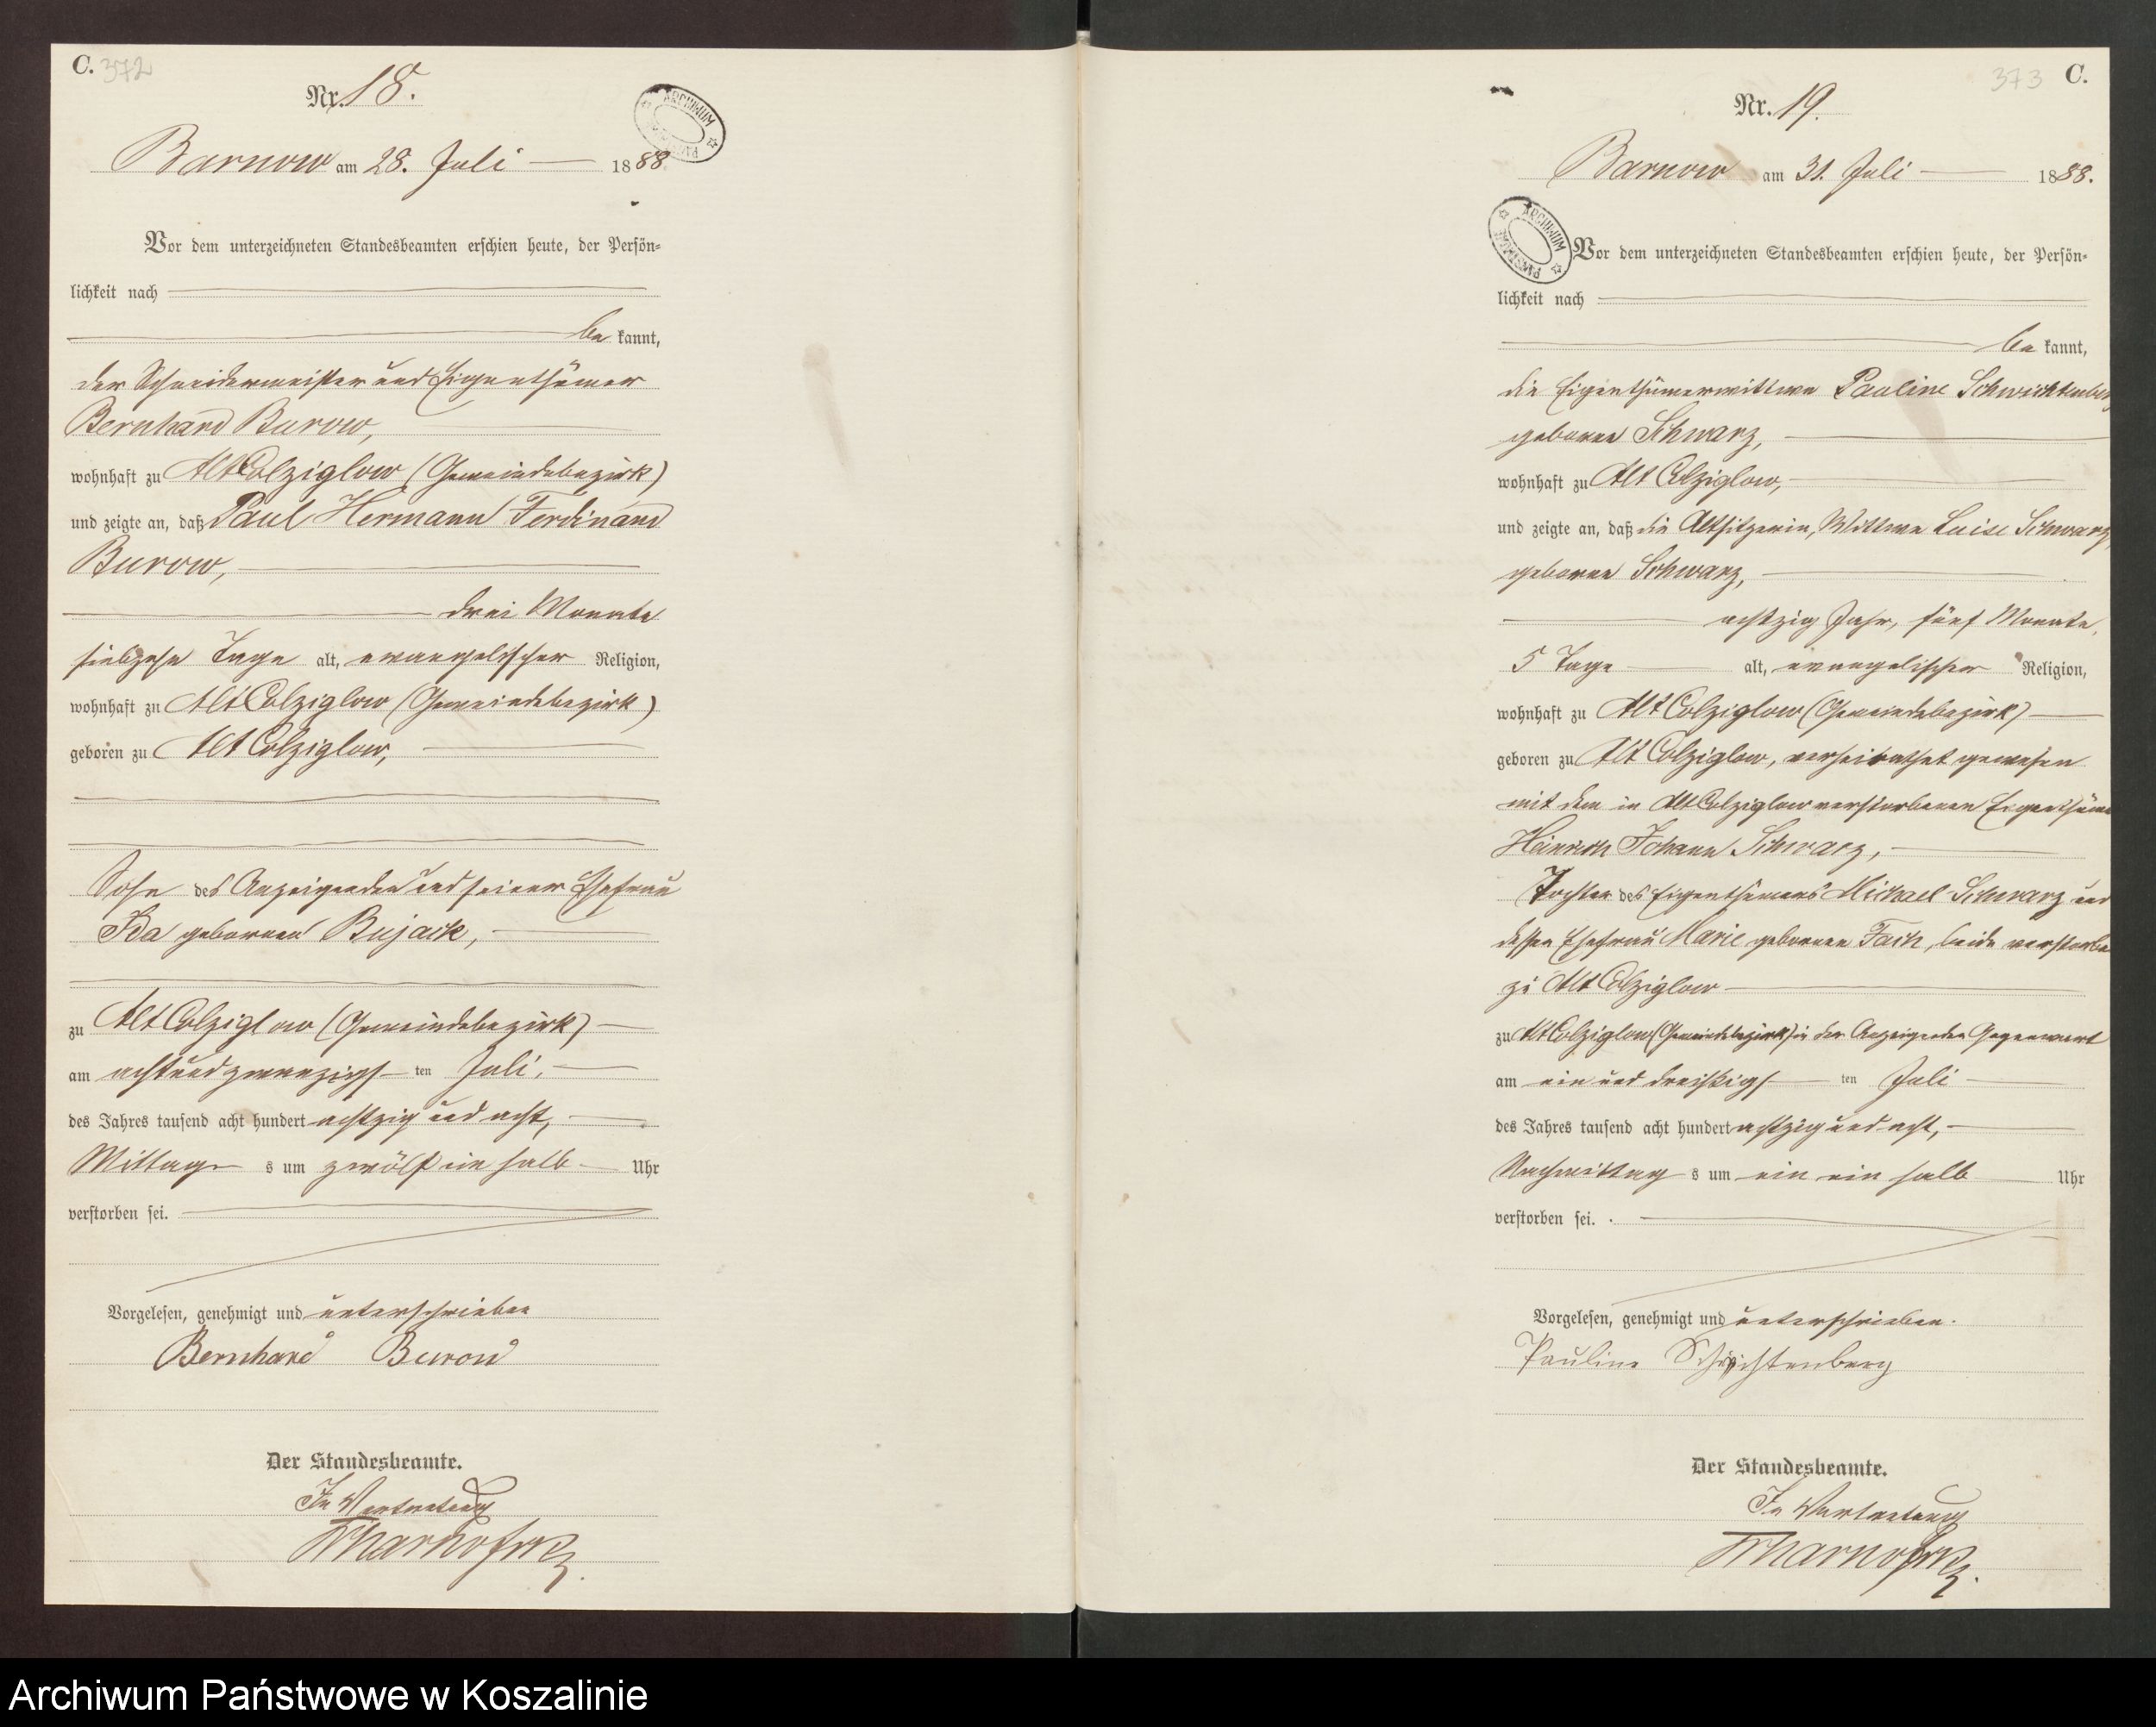 C. 372
Nr. 18.
ARCHIWUM
Barnow am 28. Juli 1888
Vor dem unterzeichneten Standesbeamten erschien heute, der Persön-
lichkeit nach
be kannt,
der Schneidermeister und Eigenthümer
Bernhard Burow,
wohnhaft zu Alt Colziglow (Gemeindebezirk)
und zeigte an, daß Paul Hermann Ferdinand
Burow,
drei Monate
siebzehn Tage alt, evangelischer Religion,
wohnhaft zu Alt Colziglow (Gemeindebezirk)
geboren zu Alt Colziglow,
Sohn des Anzeigenden und seiner Ehefrau
Ida gebornen Bujack,
zu Alt Colziglow (Gemeindebezirk)
am achtundzwanzigs ten Juli,
des Jahres tausend acht hundert achtzig und acht,
Mittag s um zwölf ein halb Uhr
verstorben sei.
Vorgelesen, genehmigt und unterschrieben
Bernhard Burow
Der Standesbeamte.
In Vertretung
373 C.
Nr. 19.
Barnow am 31. Juli 1888.
ARCHIWUM PAŃSTWOWE
Vor dem unterzeichneten Standesbeamten erschien heute, der Persön-
lichkeit nach
be kannt,
die Eigenthümerwittwe Pauline Schwichtenberg
geborne Schwarz,
wohnhaft zu Alt Colziglow,
und zeigte an, daß die Altsitzerin, Wittwe Luise Schwarz,
geborne Schwarz,
achtzig Jahr, fünf Monate,
5 Tage alt, evangelischer Religion,
wohnhaft zu Alt Colziglow (Gemeindebezirk)
geboren zu Alt Colziglow, verheirathet gewesen
mit dem in Alt Colziglow verstorbenen Eigenthüme
Heinrich Johann Schwarz,
Tochter des Eigenthümers Michael Schwarz und
dessen Ehefrau Marie gebornen Fach, beide verstorbe
zu Alt Colziglow
zu Alt Colziglow (Gemeindebezirk) in der Anzeigenden Gegenwart
am ein und dreißigs ten Juli
des Jahres tausend acht hundert achtzig und acht,
Nachmittag s um ein ein halb Uhr
verstorben sei.
Vorgelesen, genehmigt und unterschrieben.
Pauline Schwichtenberg
Der Standesbeamte.
In Vertretung
Archiwum Państwowe w Koszalinie